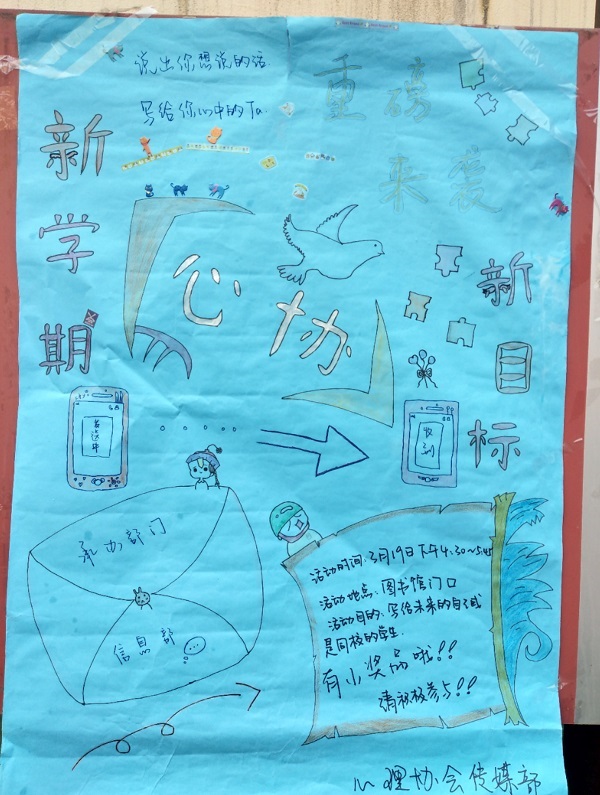 说出你想说的话
写给你心中的Ta.
重磅
来袭
新学期
心协
新目标
发送中
收到
承办部门
信息部
活动时间:3月19日下午4:30~5:45
活动地点:图书馆门口
活动目的:写给未来的自己或
是同校的学生.
有小奖品哦!!
请积极参与!!
心理协会传媒部